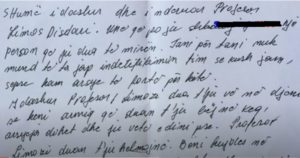 Shumë i dashur dhe i nderuar Profesor
Simos Disdari. Unë që po ju shkruaj një
person që ju dua të mirën. Tani për tani nuk
mund të ta jap indetifikimin tim se kush jam,
sepse kam arsye të forta për këtë.
I dashur Profesor, Simoz dua t'ju vë në dijeni
se keni armiq që duan t'ju bëjnë keq
arsyeja duhet dhe ju vetë e dini pse. Profesor
Simozi duan t'ju helmojnë. Beni kujdes në